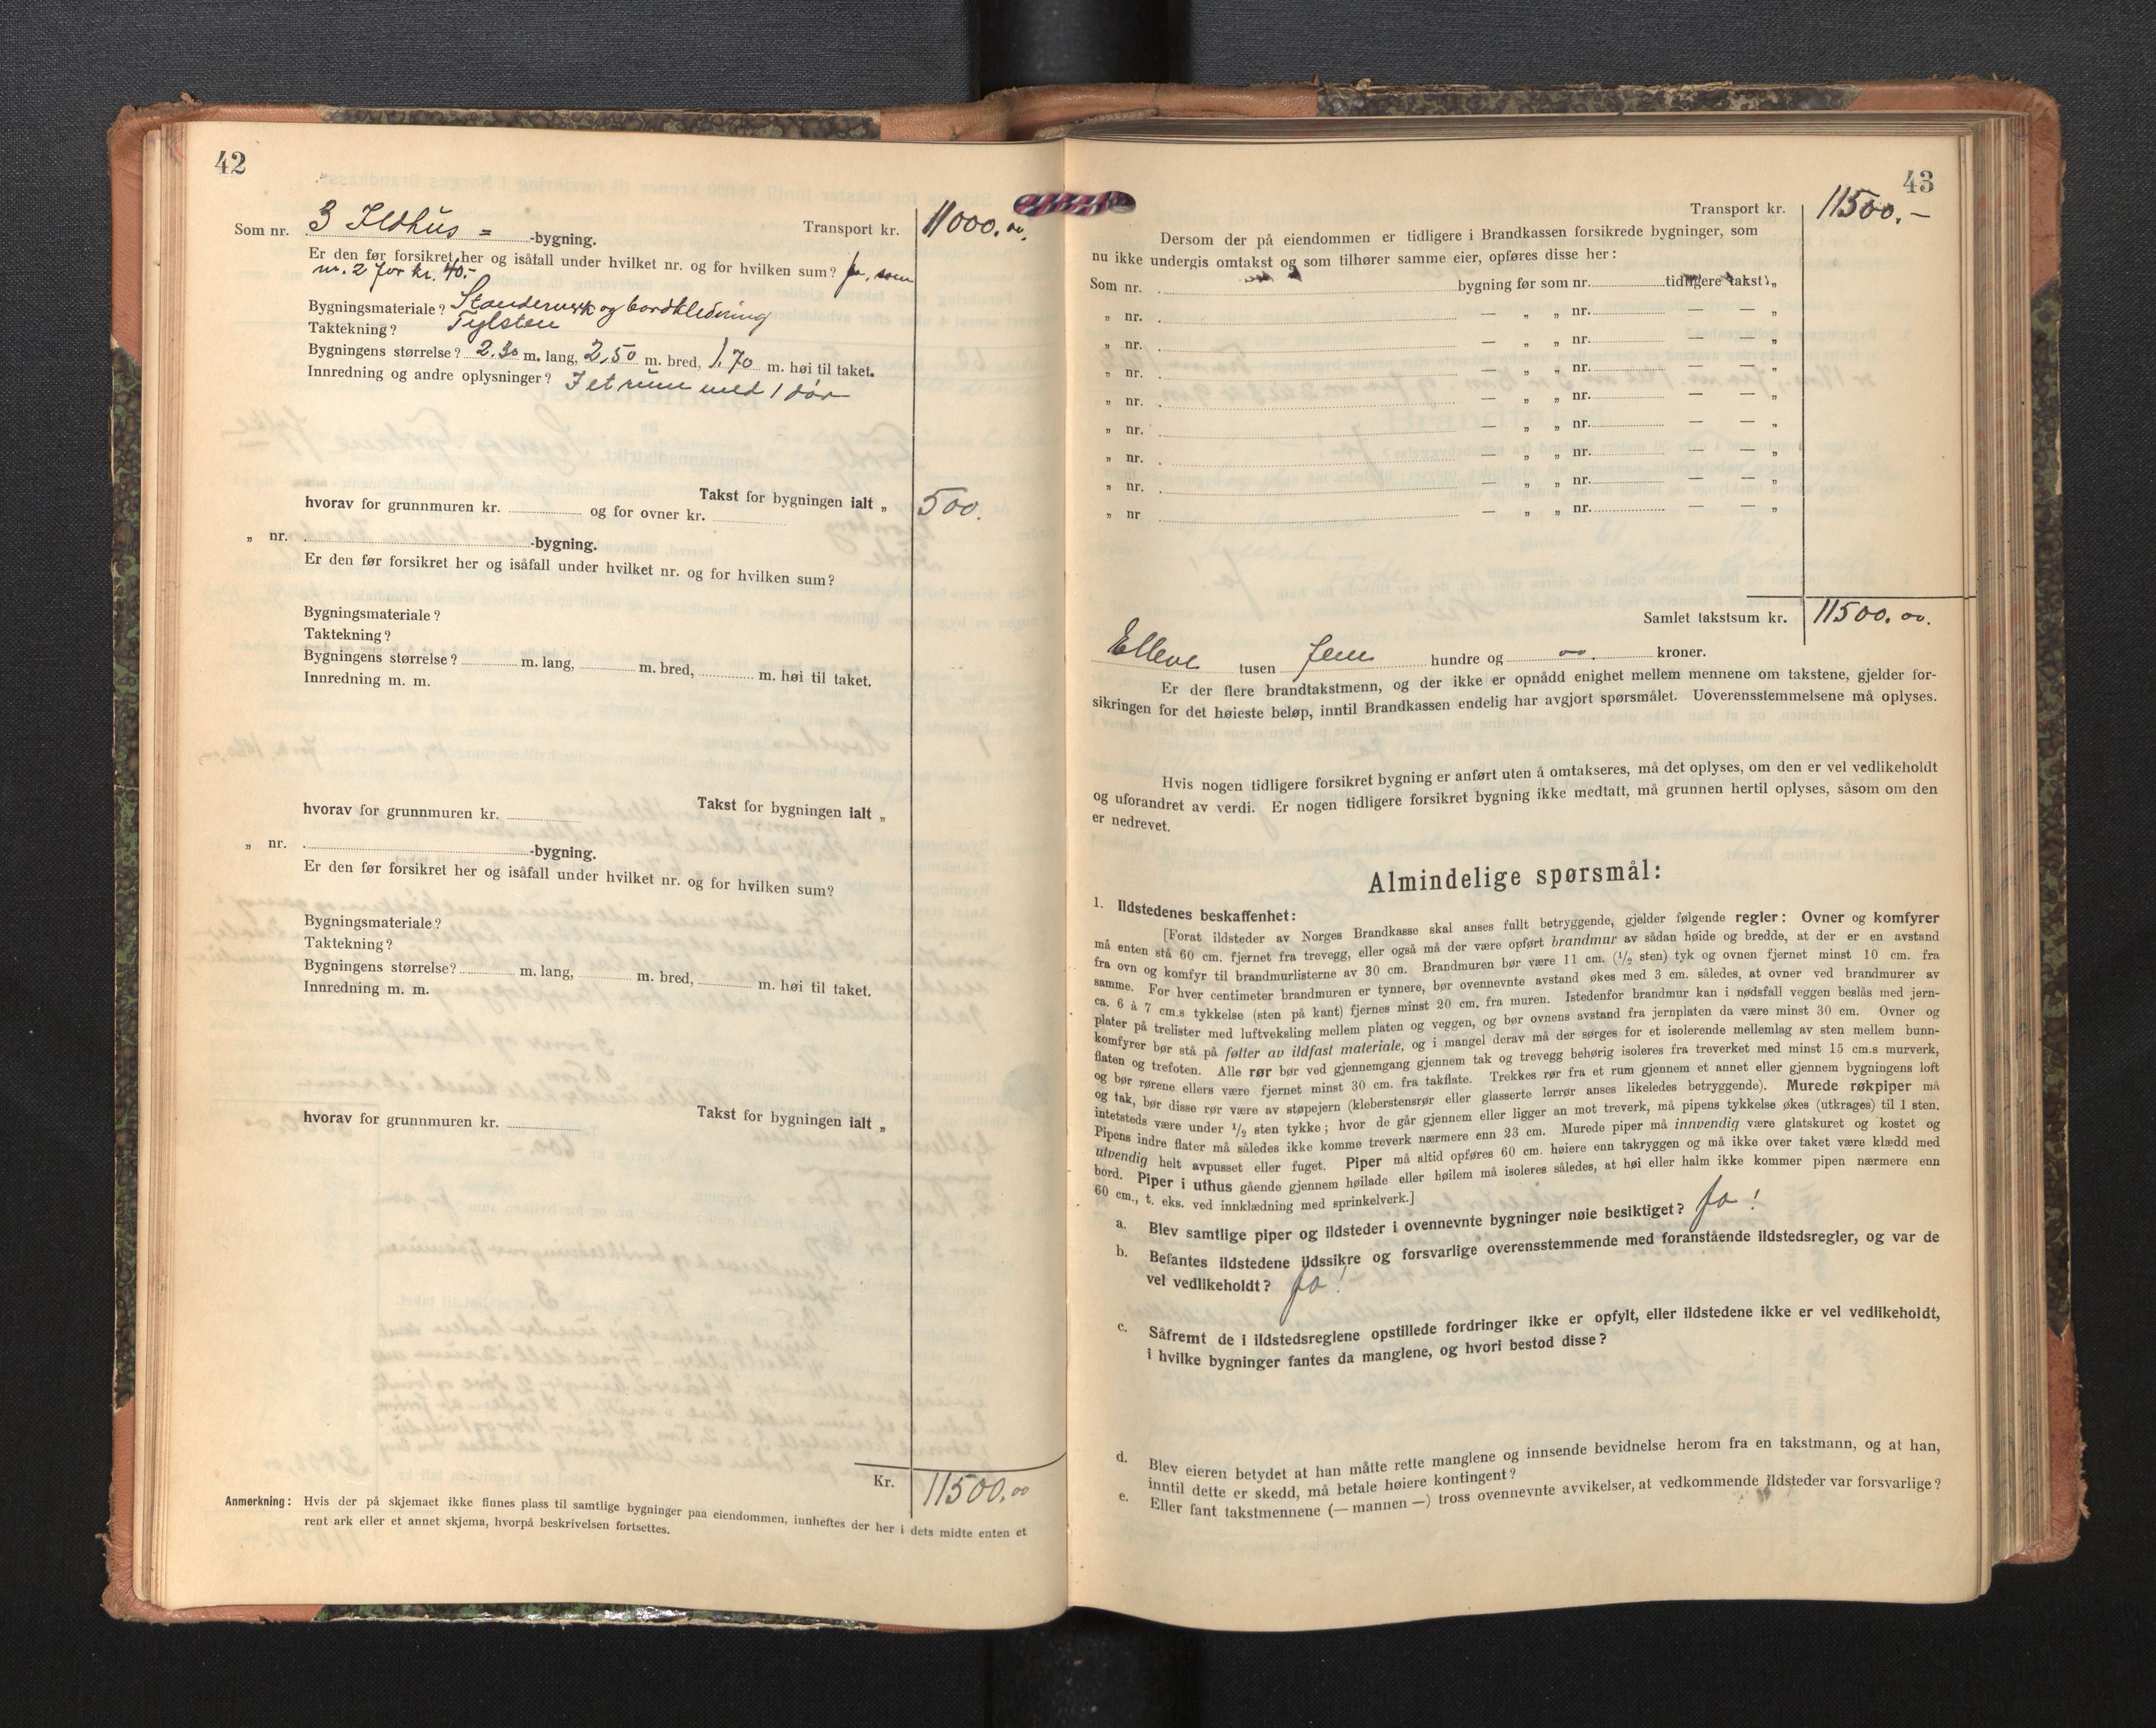 42
Som nr. 3 Ildhus = -bygning. Transport kr. 11000.00.
Er den før forsikret her og isåfall under hvilket nr. og for hvilken sum? ja, som
nr. 2 for kr. 40.-
Bygningsmateriale? Standerverk og bordkledning
Taktekning? Tylsten
Bygningens størrelse? 2.30 m. lang, 2,50 m. bred, 1.70 m. høi til taket.
Innredning og andre oplysninger? I et rum med 1 dør
Takst for bygningen ialt „ 500.
hvorav for grunnmuren kr. og for ovner kr.
„ nr. -bygning.
Er den før forsikret her og isåfall under hvilket nr. og for hvilken sum?
Bygningsmateriale?
Taktekning?
Bygningens størrelse? m. lang, m. bred, m. høi til taket.
Innredning m. m.
Takst for bygningen ialt „
hvorav for grunnmuren kr.
„ nr. -bygning.
Er den før forsikret her og isåfall under hvilket nr. og for hvilken sum?
Bygningsmateriale?
Taktekning?
Bygningens størrelse? m. lang, m. bred, m. høi til taket.
Innredning m. m.
Takst for bygningen ialt „
hvorav for grunnmuren kr.
Kr. 11500.00
Anmerkning: Hvis der på skjemaet ikke finnes plass til samtlige bygninger paa eiendommen, innheftes der her i dets midte enten et
rent ark eller et annet skjema, hvorpå beskrivelsen fortsettes.
43
Transport kr. 11500.-
Dersom der på eiendommen er tidligere i Brandkassen forsikrede bygninger, som
nu ikke undergis omtakst og som tilhører samme eier, opføres disse her:
Som nr. bygning før som nr. tidligere takst „
„ nr. — „ „ nr. — — „
„ nr. — „ „ nr. — — „
„ nr. — „ „ nr. — — „
„ nr. — „ „ nr. — — „
„ nr. — „ „ nr. — — „
„ nr. — „ „ nr. — — „
„ nr. — „ „ nr. — — „
„ nr — „ „ nr. — — „
Samlet takstsum kr. 11500.00.
Elleve tusen fem hundre og 00. kroner.
Er der flere brandtakstmenn, og der ikke er opnådd enighet mellem mennene om takstene, gjelder for-
sikringen for det høieste beløp, inntil Brandkassen endelig har avgjort spørsmålet. Uoverensstemmelsene må oplyses.
Hvis nogen tidligere forsikret bygning er anført uten å omtakseres, må det oplyses, om den er vel vedlikeholdt
og uforandret av verdi. Er nogen tidligere forsikret bygning ikke medtatt, må grunnen hertil oplyses, såsom om den
er nedrevet.
Almindelige spørsmål:
1. Ildstedenes beskaffenhet:
[Forat ildsteder av Norges Brandkasse skal anses fullt betryggende, gjelder følgende regler: Ovner og komfyrer
må enten stå 60 cm. fjernet fra trevegg, eller også må der være opført brandmur av sådan høide og bredde, at der er en avstand
fra ovn og komfyr til brandmurlisterne av 30 cm. Brandmuren bør være 11 cm. (1/2 sten) tyk og ovnen fjernet minst 10 cm. fra
samme. For hver centimeter brandmuren er tynnere, bør ovennevnte avstand økes med 3 cm. således, at ovner ved brandmurer av
ca. 6 à 7 cm.s tykkelse (sten på kant) fjernes minst 20 cm. fra muren. Istedenfor brandmur kan i nødsfall veggen beslås med jern-
plater på trelister med luftveksling mellem platen og veggen, og bør ovnens avstand fra jernplaten da være minst 30 cm. Ovner og
komfyrer bør stå på føtter av ildfast materiale, og i mangel derav må der sørges for et isolerende mellemlag av sten mellem bunn-
flaten og trefoten. Alle rør bør ved gjennemgang gjennem tak og trevegg behørig isoleres fra treverket med minst 15 cm.s murverk,
og bør rørene ellers være fjernet minst 30 cm. fra takflate. Trekkes rør fra et rum gjennem et annet eller gjennem bygningens loft
og tak, bør disse rør være av støpejern (kleberstensrør eller glasserte lerrør anses likeledes betryggende). Murede røkpiper må
intetsteds være under 1/2 sten tykke; hvor de går gjennem eller ligger an mot treverk, må pipens tykkelse økes (utkrages) til 1 sten.
Pipens indre flater må således ikke komme treverk nærmere enn 23 cm. Murede piper må innvendig være glatskuret og kostet og
utvendig helt avpusset eller fuget. Piper må altid opføres 60 cm. høiere enn takryggen og må ikke over taket være klædd med
bord. Piper i uthus gående gjennem høilade eller høilem må isoleres således, at høi eller halm ikke kommer pipen nærmere enn
60 cm., t. eks. ved innklædning med sprinkelverk.]
a. Blev samtlige piper og ildsteder i ovennevnte bygninger nøie besiktiget? Ja!
b. Befantes ildstedene ildssikre og forsvarlige overensstemmende med foranstående ildstedsregler, og var de
vel vedlikeholdt? Ja!
c. Såfremt de i ildstedsreglene opstillede fordringer ikke er opfylt, eller ildstedene ikke er vel vedlikeholdt,
i hvilke bygninger fantes da manglene, og hvori bestod disse?
d. Blev eieren betydet at han måtte rette manglene og innsende bevidnelse herom fra en takstmann, og at han,
inntil dette er skedd, må betale høiere kontingent?
e. Eller fant takstmennene (— mannen —) tross ovennevnte avvikelser, at vedkommende ildsteder var forsvarlige?